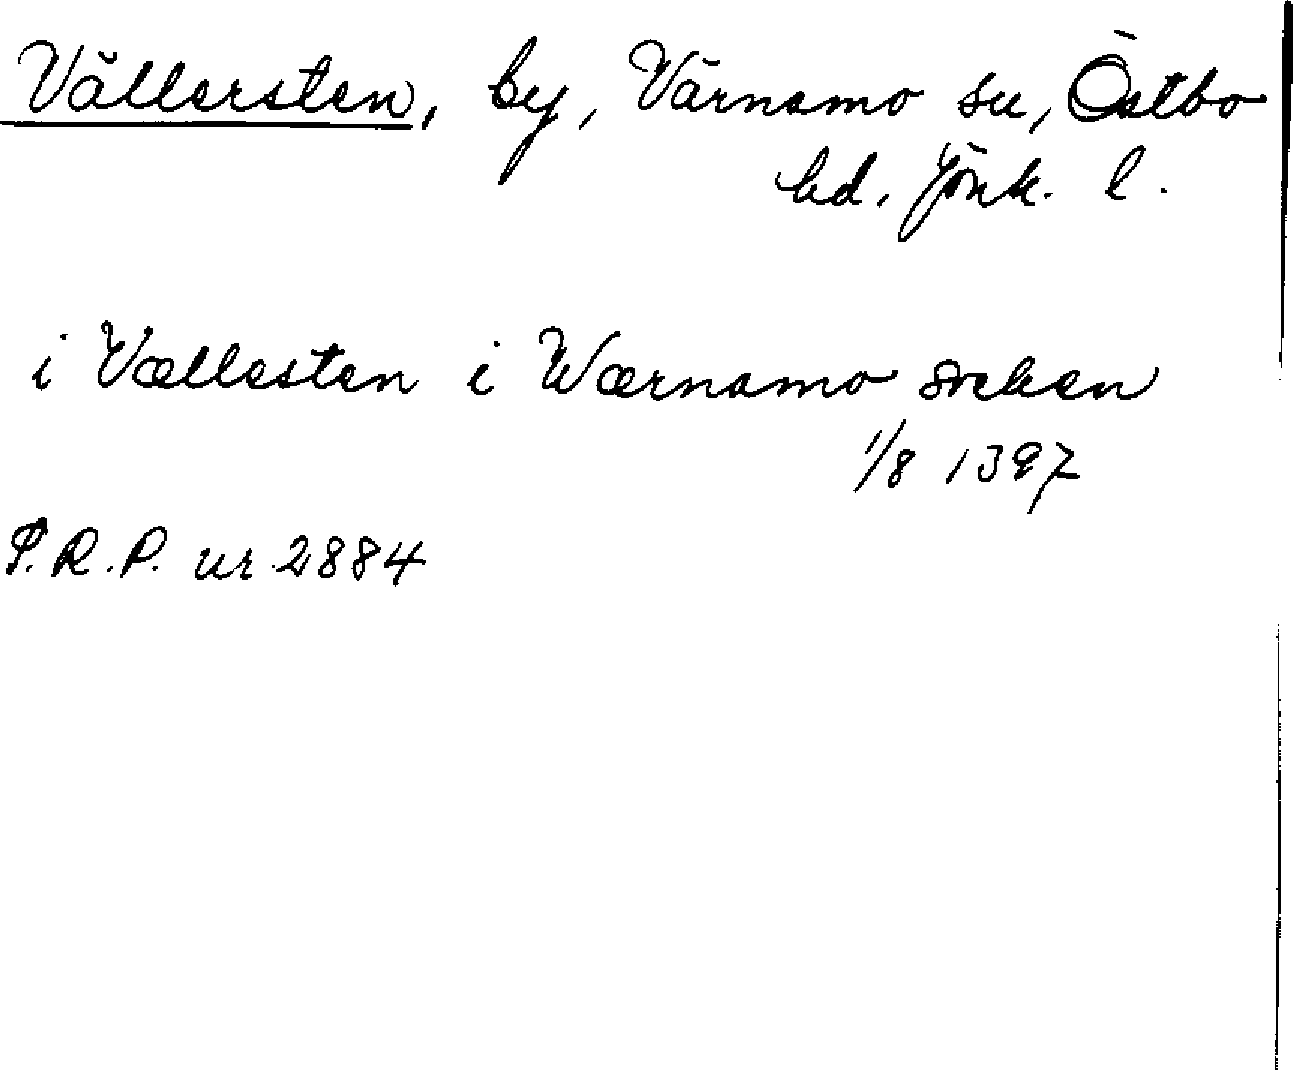 Vällersten, by, Värnamo sn, Östbo
hd. Jönk. l.
i Vællesten i Wærnamo soken
1/8 1397
P.R.P. nr 2884